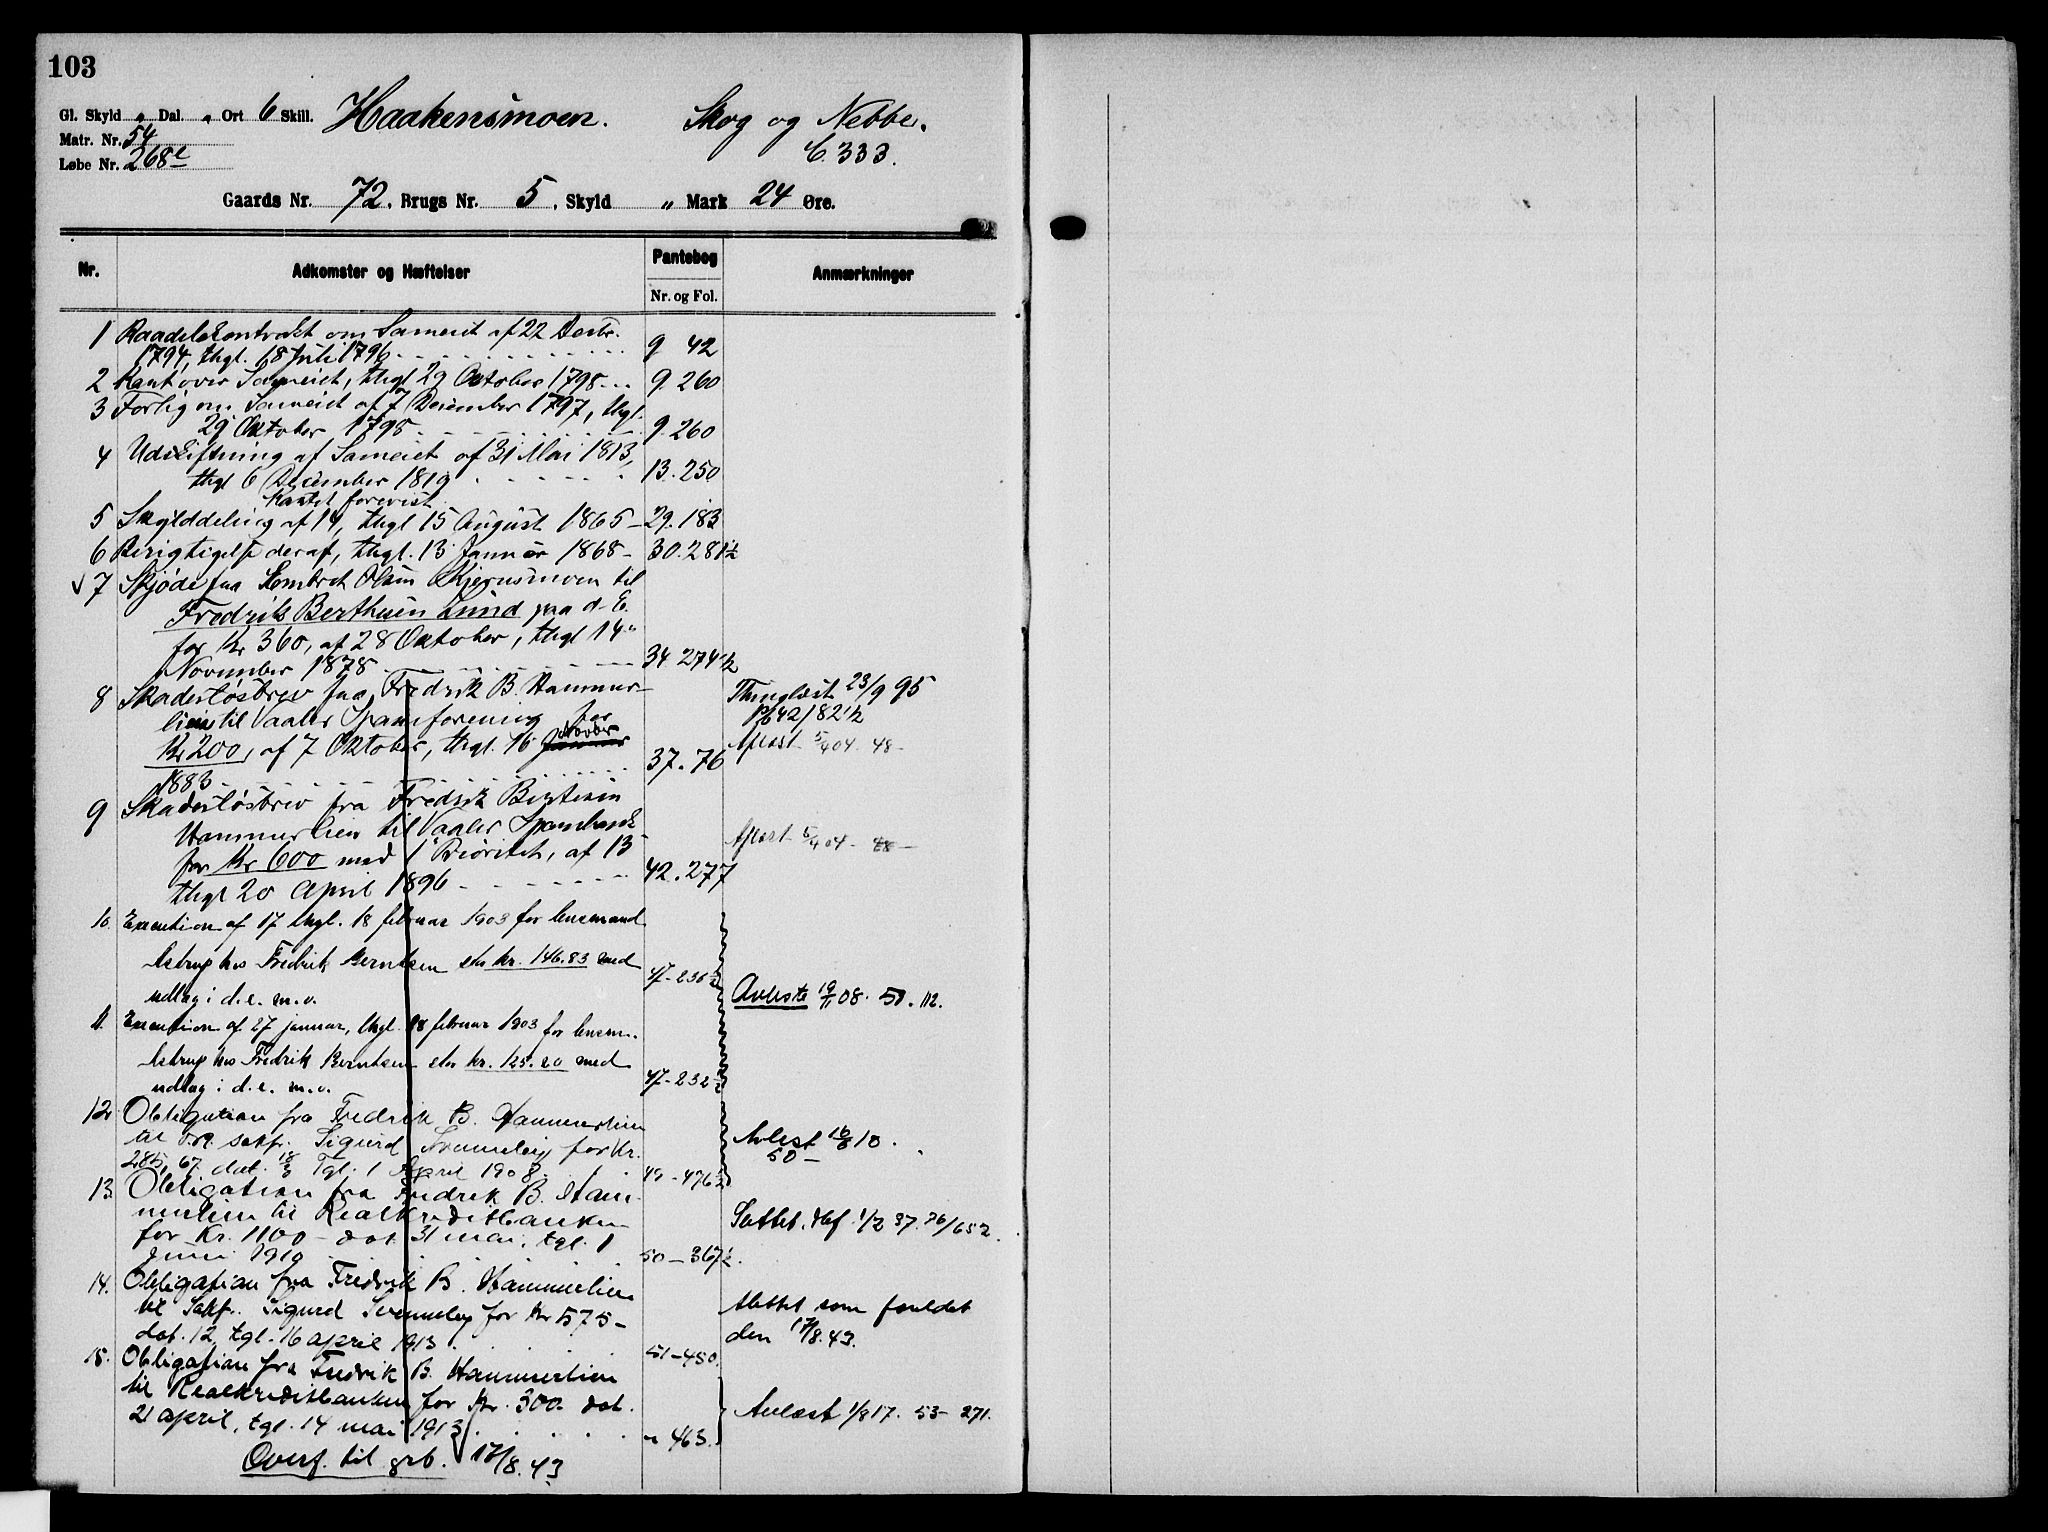 103
Gl. Skyld „ Dal. „ Ort 6 Skill. Haakensmoen. Skog og Nebbe.
Matr. Nr. 54 C. 333.
Løbe Nr. 268e
Gaards Nr. 72, Brugs Nr. 5, Skyld „ Mark 24 Øre.
Nr. Adkomster og Hæftelser Pantebog Anmærkninger
Nr. og Fol.
1 Raadelskontrakt om Sameiet af 22 Decbr.
1794, thgl. 18 Juli 1796 9 42
2 Kart over Sameiet, thgl 29 Oktober 1798 9. 260
3 Forlig om Sameiet af 7 December 1797, thgl.
29 Oktober 1798 9. 260
4 Udskiftning af Sameiet af 31 Mai 1813,
thgl 6 December 1819 13. 250
Kartet forevist
5 Skylddeling af 14, thgl 15 August 1865 29. 183
6 Berigtigelse deraf, thgl. 13 Januar 1868 30. 281½
√ 7 Skjøde fra Lombret Olsen Kjernsmoen til
Fredrik Berthsen Lund paa d. E.
for Kr 360, af 28 Oktober, thgl 14
November 1878 34 274½
8 Skadesløsbrev fra Fredrik B. Hammer-
lien til Vaaler Spareforening for Thinglæst 23/9 95
Kr 200, af 7 Oktober, thgl. 16 Januar Novbr P/b 42/82½
1883 37. 76 Aflæst 5/4 04. 48-
9 Skadesløsbrev fra Fredrik Bertsen
Hammerlien til Vaaler Sparebank
for Kr 600 med 1 Prioritet, af 13 Aflæst 5/4 04 - 48 -
thgl 20 April 1896 42. 277
10. Execution af 17 thgl. 18 februar 1903 for lensmand
Astrup hos Fredrik Berntsen str kr. 146.83 med 47-236½
udlæg i d. e. m. v. Avleste 19/11 08. 50. 112.
11. Execution af 27 januar, thgl. 18 februar 1903 for lensm.
Astrup hos Fredrik Berntsen str kr. 125.20 med
udlæg i d. e. m. v. 47-232½
12. Obligation fra Fredrik B. Hammerlien
til O.R. sakf. Sigurd Svenneby for Kr. Avlest 16/8 10.
285,67. dat. 18/3 Tgl. 1 April 1908. 49-476½ 50-
13. Obligation fra Fredrik B. Ham-
merlien til Realkreditbanken Slettet. thf. 1/2 37. 76/652.
for Kr. 1100 - dat 31 mai, tgl. 1
Juni 1910 50-367½.
14. Obligation fra Fredrik B. Hammerlien
til Sakf. Sigurd Svenneby for Kr 575- slettet som foreldet
dat. 12, tgl. 16 april 1913. 51-450. den 17/8.43.
15. Obligation fra Fredrik B. Hammerlien
til Realkreditbanken for Kr. 300. dat.
21 april, tgl. 14 mai 1913. „ 463. Avlæst 1/8 17. 53-271.
Overf. til grb. 17/8.43